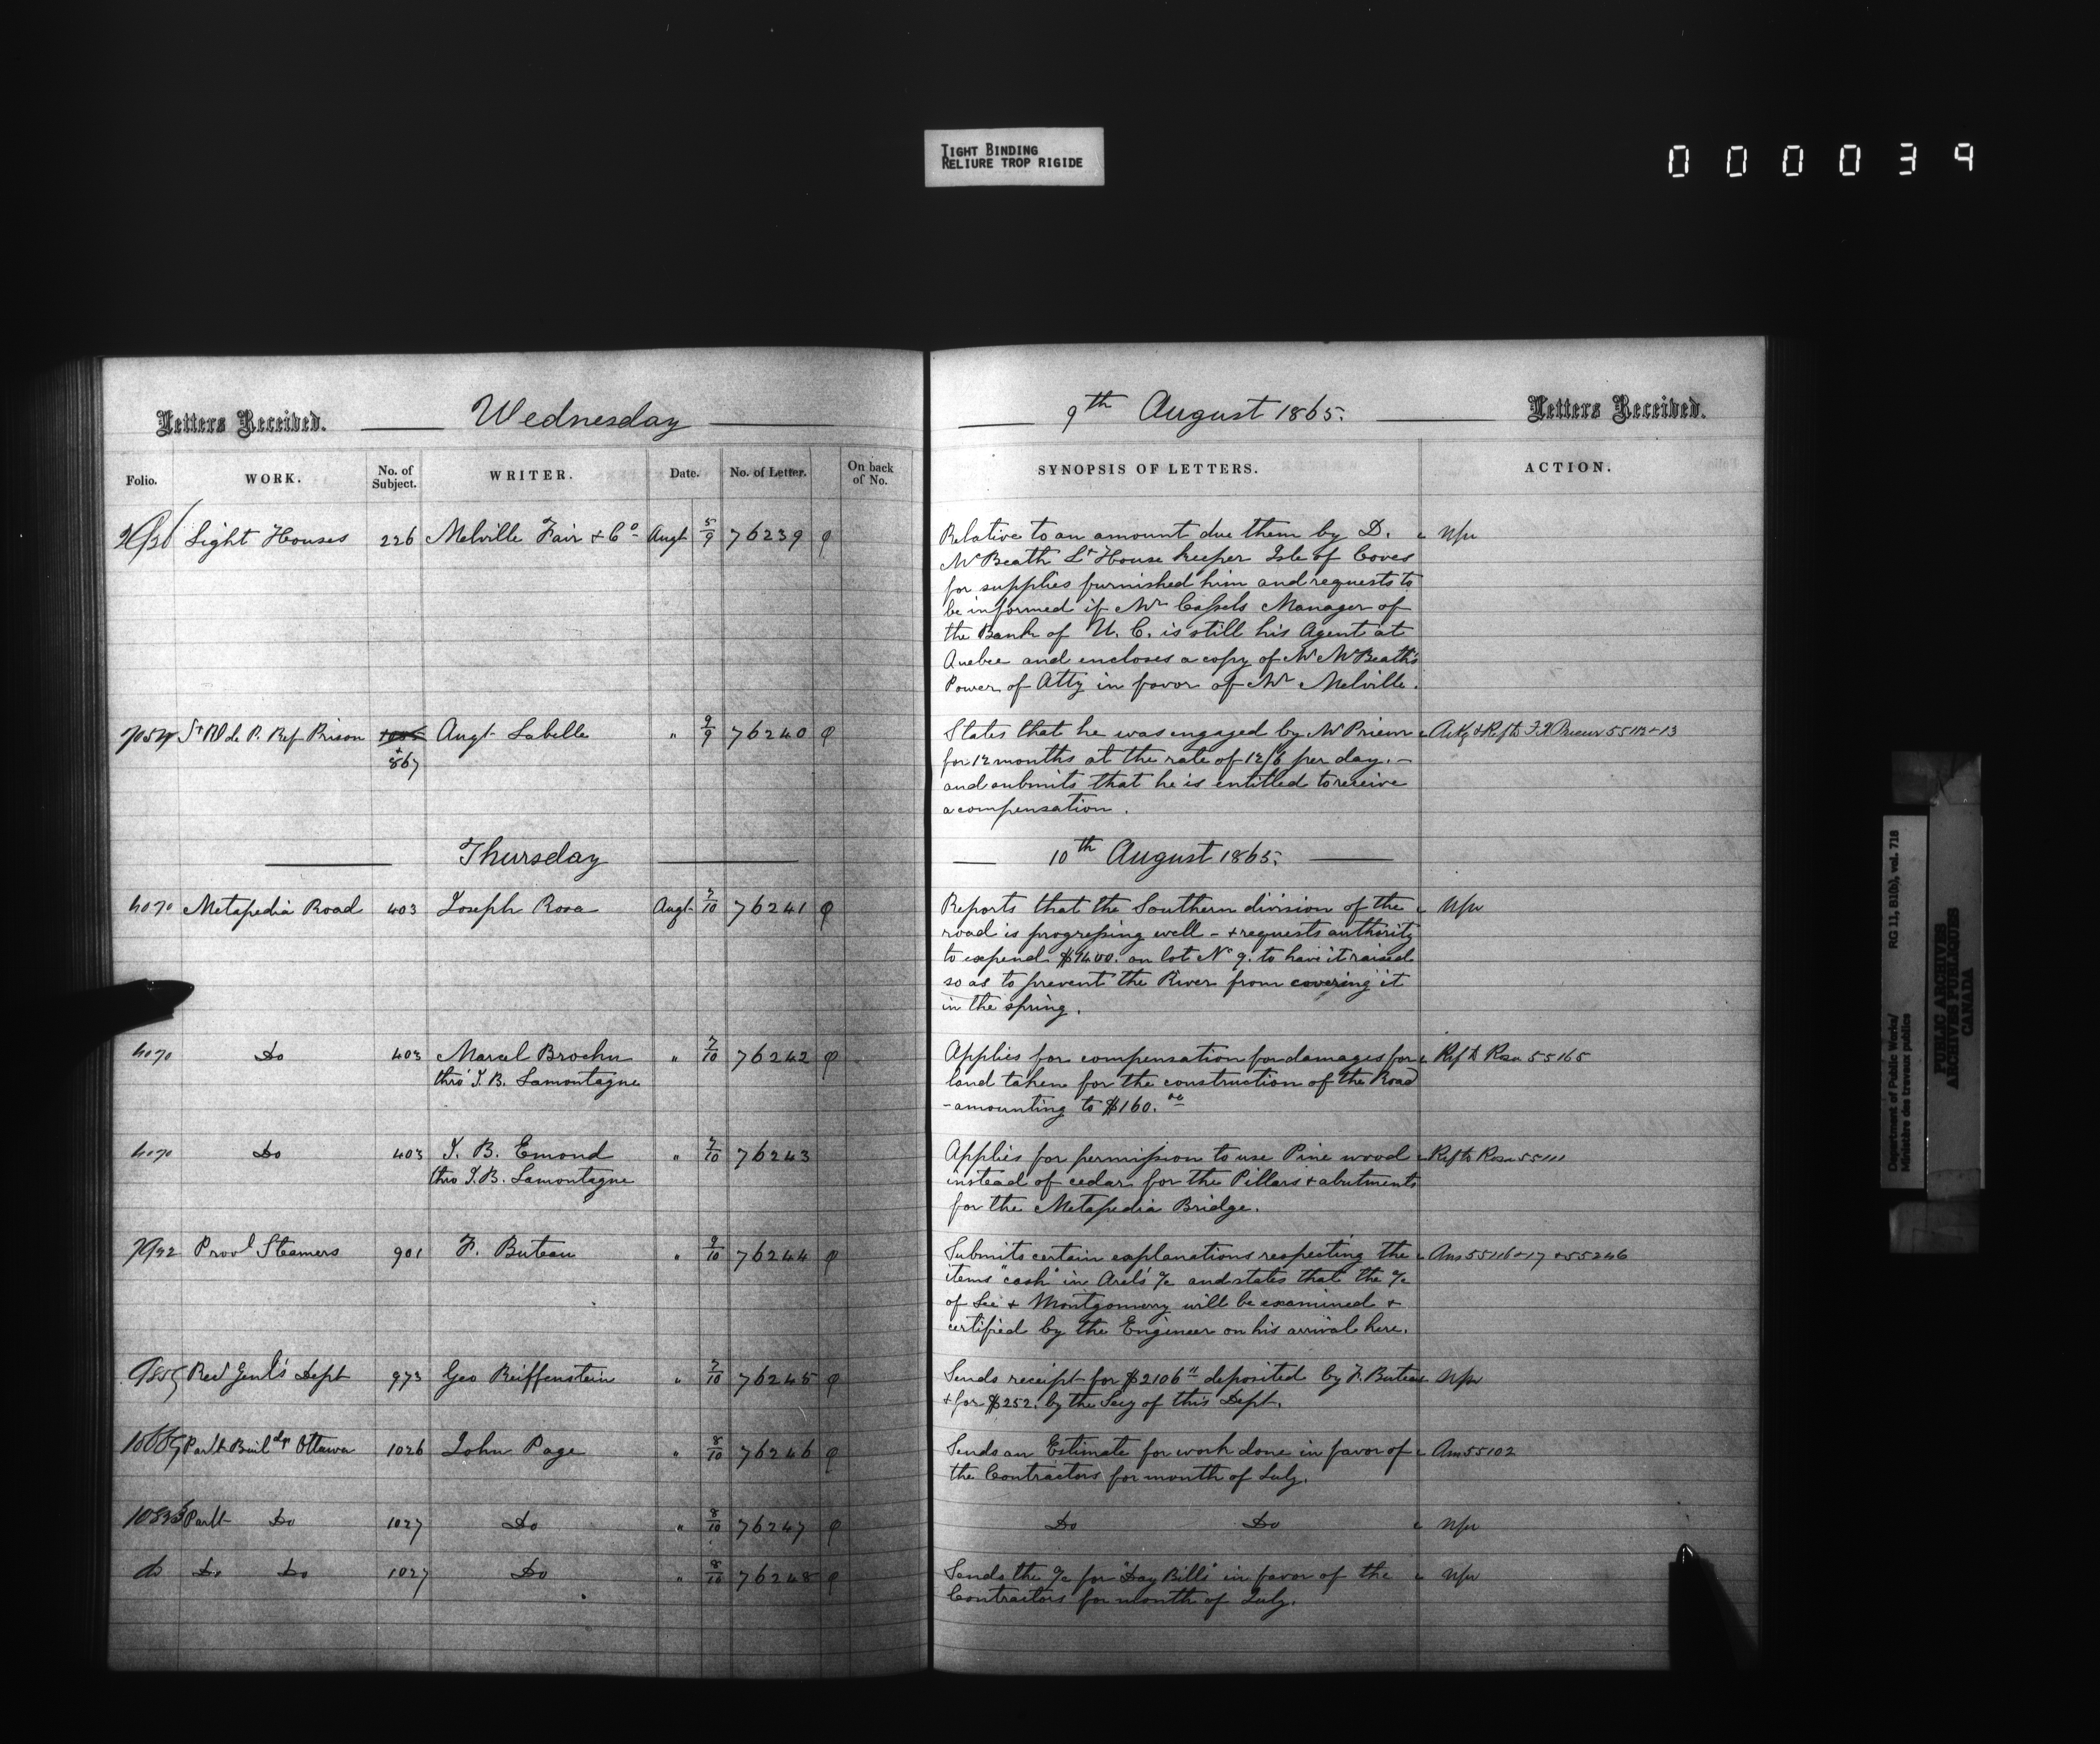 TIGHT BINDING
RELIURE TROP RIGIDE
000039
Letters Received. Wednesday 9th August 1865. Letters Received.
Folio. WORK. No. of Subject. WRITER. Date. No. of Letter. On back of No. SYNOPSIS OF LETTERS. ACTION.
Light Houses 226 Melville Fair & Co Augt 5/9 76239 Relative to an amount due them by D.
McBeath Lt House keeper Isle of Coves
for supplies furnished him and requests to
be informed if Mr Cassels Manager of
the Bank of U. C. is still his Agent at
Quebec and encloses a copy of Mr McBeath's
Power of Atty in favor of Mr Melville.
St V de P. Ref Prison 867 Augt Labelle " 9/9 76240 States that he was engaged by Mr Prieur
for 12 months at the rate of 12/6 per day. —
and submits that he is entitled to receive
a compensation.
Thursday 10th August 1865.
4070 Metapedia Road 403 Joseph Rosa Augt 7/10 76241 Reports that the Southern division of the
road is progressing well - & requests authority
to expend on lot No 9. to have it raised
so as to prevent the River from covering it
in the spring.
4070 Do 403 Marcel Brochu " 7/10 76242 Applies for compensation for damages for Refd to Rosa 55165
thro' J. B. Lamontagne land taken for the construction of the Road
- amounting to $160.00
4070 Do 403 J. B. Emond " 7/10 76243 Applies for permission to use Pine wood Refd to Rosa 55111
thro J. B. Lamontagne instead of cedar for the Pillars & abutments
for the Metapedia Bridge.
Provl Steamers 901 F. Buteau " 9/10 76244 Submits certain explanations respecting the Ans 55116 & 17 & 55246
items "cash" in Arel's a/c and states that the a/c
of Lee & Montgomery will be examined &
certified by the Engineer on his arrival here.
Recr Genl's Dept 973 Geo Reiffenstein " 7/10 76245 Sends receipt for $2106 deposited by F. Buteau
& for $252. by the Secy of this Dept.
Parlt Buildgs Ottawa 1026 John Page " 8/10 76246 Sends an Estimate for work done in favor of Ans 55102
the Contractors for month of July.
Parlt Do 1027 Do " 8/10 76247 Do Do
do Do Do 1027 Do " 8/10 76248 Sends the a/c for "Day Bills" in favor of the
Contractors for month of July.
Department of Public Works/ RG 11, B1(b), vol. 718
Ministère des travaux publics
PUBLIC ARCHIVES
ARCHIVES PUBLIQUES
CANADA